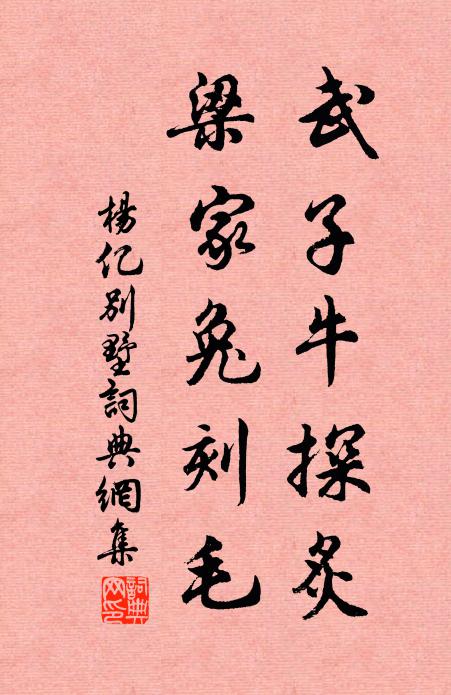 武子牛探炙
梁家兔刻毛
楊亿別墅詞典網集
詞典
网印